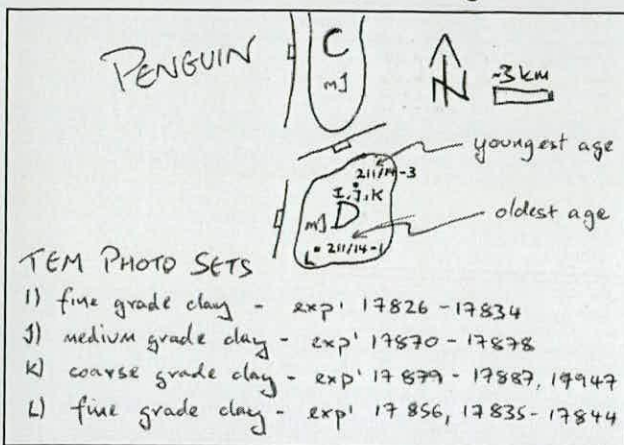 PENGUIN
C
mJ
N
~3 km
youngest age
211/14-3
I, J, K
mJ D
oldest age
L 211/14-1
TEM PHOTO SETS
I) fine grade clay - exp' 17826 - 17834
J) medium grade clay - exp' 17870 - 17878
K) coarse grade clay - exp' 17879 - 17887, 17947
L) fine grade clay - exp' 17856, 17835 - 17844